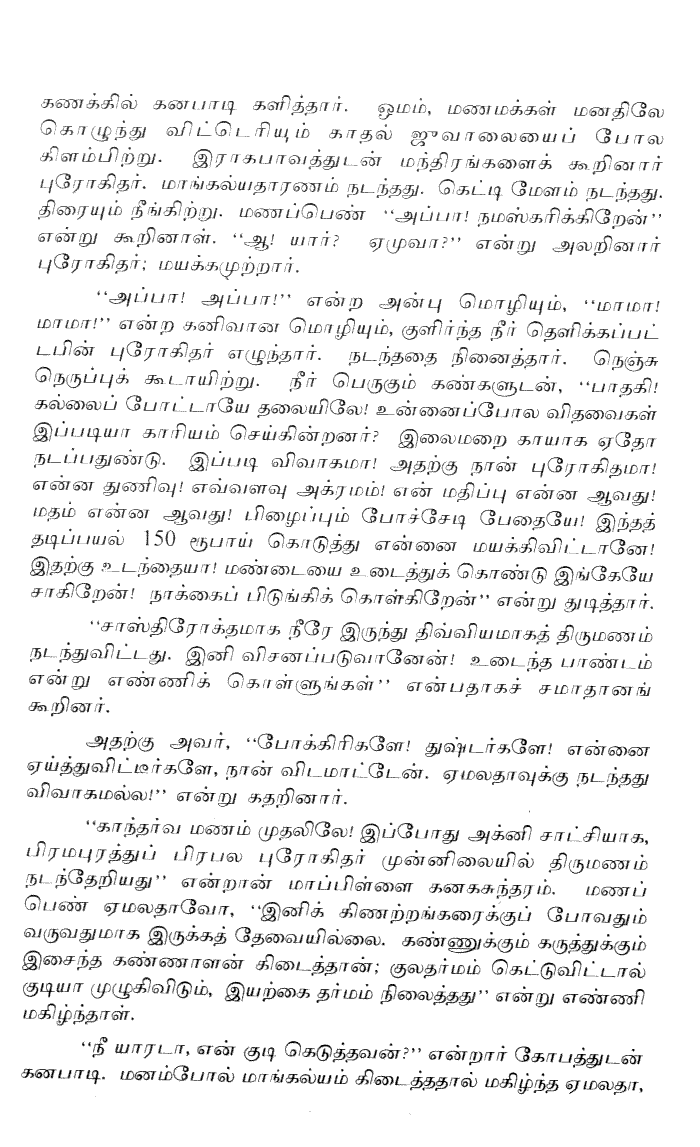 கணக்கில் கனபாடி களித்தார். ஓமம், மணமக்கள் மனதிலே
கொழுந்து விட்டெரியும் காதல் ஜுவாலையைப் போல
கிளம்பிற்று. இராகபாவத்துடன் மந்திரங்களைக் கூறினார்
புரோகிதர். மாங்கல்யதாரணம் நடந்தது. கெட்டி மேளம் நடந்தது.
திரையும் நீங்கிற்று. மணப்பெண் “அப்பா! நமஸ்கரிக்கிறேன்”
என்று கூறினாள். “ஆ! யார்? ஏமுவா?” என்று அலறினார்
புரோகிதர்; மயக்கமுற்றார்.
“அப்பா! அப்பா!” என்ற அன்பு மொழியும், “மாமா!
மாமா!” என்ற கனிவான மொழியும், குளிர்ந்த நீர் தெளிக்கப்பட்
டபின் புரோகிதர் எழுந்தார். நடந்ததை நினைத்தார். நெஞ்சு
நெருப்புக் கூடாயிற்று. நீர் பெருகும் கண்களுடன், “பாதகி!
கல்லைப் போட்டாயே தலையிலே! உன்னைப்போல விதவைகள்
இப்படியா காரியம் செய்கின்றனர்? இலைமறை காயாக ஏதோ
நடப்பதுண்டு. இப்படி விவாகமா! அதற்கு நான் புரோகிதமா!
என்ன துணிவு! எவ்வளவு அக்ரமம்! என் மதிப்பு என்ன ஆவது!
மதம் என்ன ஆவது! பிழைப்பும் போச்சேடி பேதையே! இந்தத்
தடிப்பயல் 150 ரூபாய் கொடுத்து என்னை மயக்கிவிட்டானே!
இதற்கு உடந்தையா! மண்டையை உடைத்துக் கொண்டு இங்கேயே
சாகிறேன்! நாக்கைப் பிடுங்கிக் கொள்கிறேன்” என்று துடித்தார்.
“சாஸ்திரோக்தமாக நீரே இருந்து திவ்வியமாகத் திருமணம்
நடந்துவிட்டது. இனி விசனப்படுவானேன்! உடைந்த பாண்டம்
என்று எண்ணிக் கொள்ளுங்கள்” என்பதாகச் சமாதானங்
கூறினர்.
அதற்கு அவர், “போக்கிரிகளே! துஷ்டர்களே! என்னை
ஏய்த்துவிட்டீர்களே, நான் விடமாட்டேன். ஏமலதாவுக்கு நடந்தது
விவாகமல்ல!” என்று கதறினார்.
“காந்தர்வ மணம் முதலிலே! இப்போது அக்னி சாட்சியாக,
பிரமபுரத்துப் பிரபல புரோகிதர் முன்னிலையில் திருமணம்
நடந்தேறியது” என்றான் மாப்பிள்ளை கனகசுந்தரம். மணப்
பெண் ஏமலதாவோ, “இனிக் கிணற்றங்கரைக்குப் போவதும்
வருவதுமாக இருக்கத் தேவையில்லை. கண்ணுக்கும் கருத்துக்கும்
இசைந்த கண்ணாளன் கிடைத்தான்; குலதர்மம் கெட்டுவிட்டால்
குடியா முழுகிவிடும், இயற்கை தர்மம் நிலைத்தது” என்று எண்ணி
மகிழ்ந்தாள்.
“நீ யாரடா, என் குடி கெடுத்தவன்?” என்றார் கோபத்துடன்
கனபாடி. மனம்போல் மாங்கல்யம் கிடைத்ததால் மகிழ்ந்த ஏமலதா,